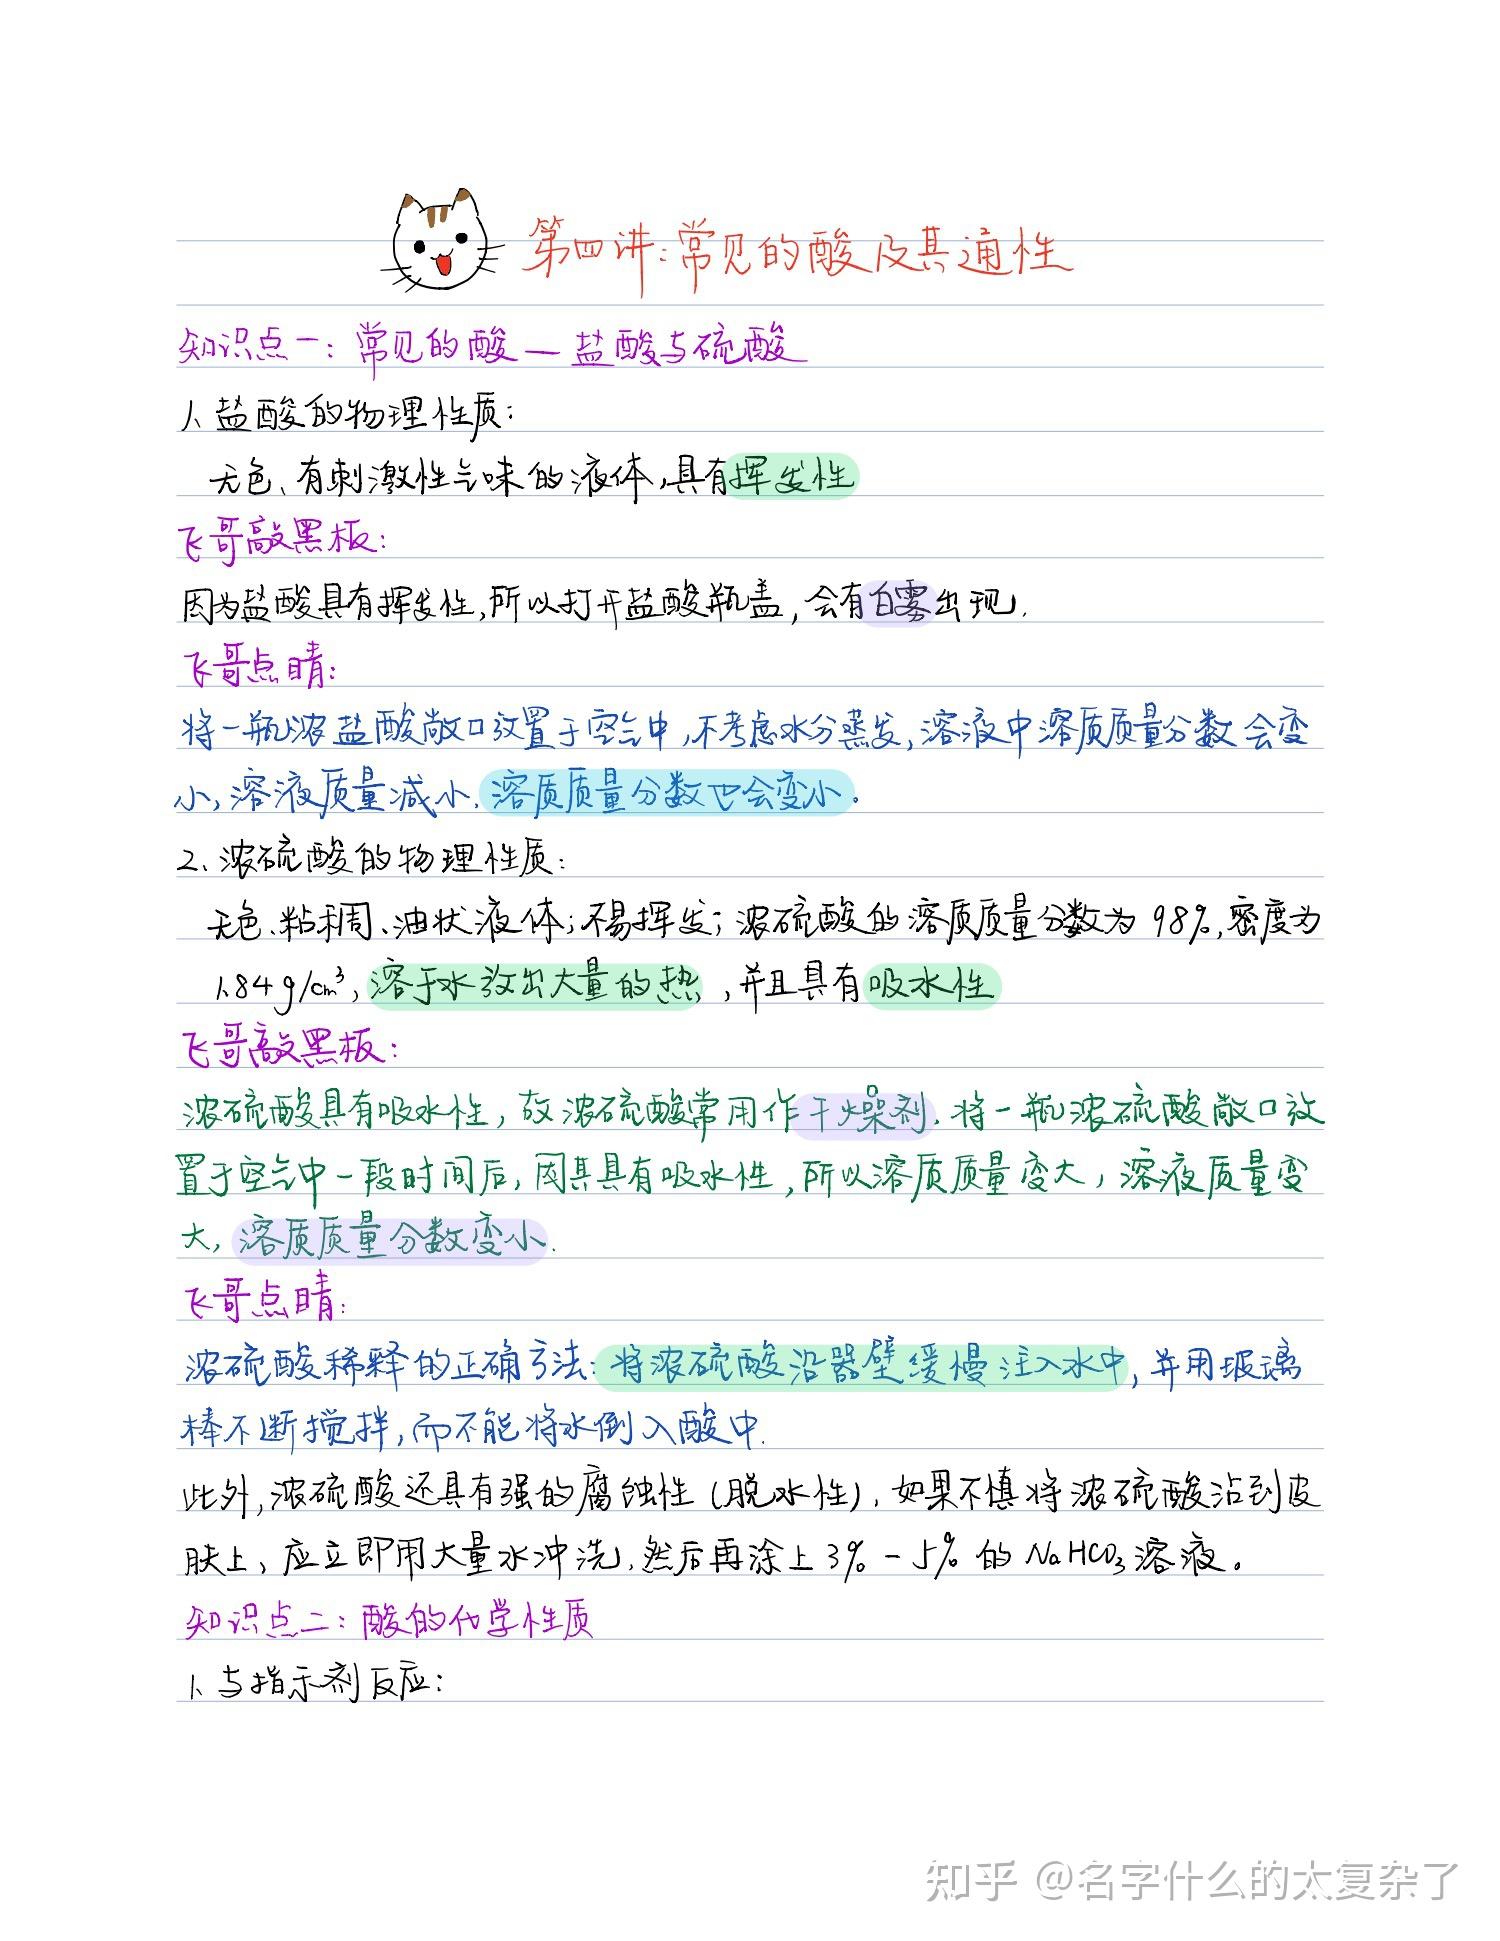 第四讲:常见的酸及其通性
知识点一:常见的酸—盐酸与硫酸
1、盐酸的物理性质:
无色、有刺激性气味的液体,具有挥发性
飞哥敲黑板:
因为盐酸具有挥发性,所以打开盐酸瓶盖,会有白雾出现.
飞哥点睛:
将一瓶浓盐酸敞口放置于空气中,不考虑水分蒸发,溶液中溶质质量分数会变
小,溶液质量减小,溶质质量分数也会变小。
2、浓硫酸的物理性质:
无色、粘稠、油状液体;不易挥发;浓硫酸的溶质质量分数为98%,密度为
1.84g/cm³,溶于水放出大量的热,并且具有吸水性
飞哥敲黑板:
浓硫酸具有吸水性,故浓硫酸常用作干燥剂.将一瓶浓硫酸敞口放
置于空气中一段时间后,因其具有吸水性,所以溶质质量变大,溶液质量变
大,溶质质量分数变小.
飞哥点睛:
浓硫酸稀释的正确方法:将浓硫酸沿器壁缓慢注入水中,并用玻璃
棒不断搅拌,而不能将水倒入酸中.
此外,浓硫酸还具有强的腐蚀性(脱水性),如果不慎将浓硫酸沾到皮
肤上,应立即用大量水冲洗,然后再涂上3%-5%的NaHCO₃溶液。
知识点二:酸的化学性质
1、与指示剂反应:
知乎 @名字什么的太复杂了